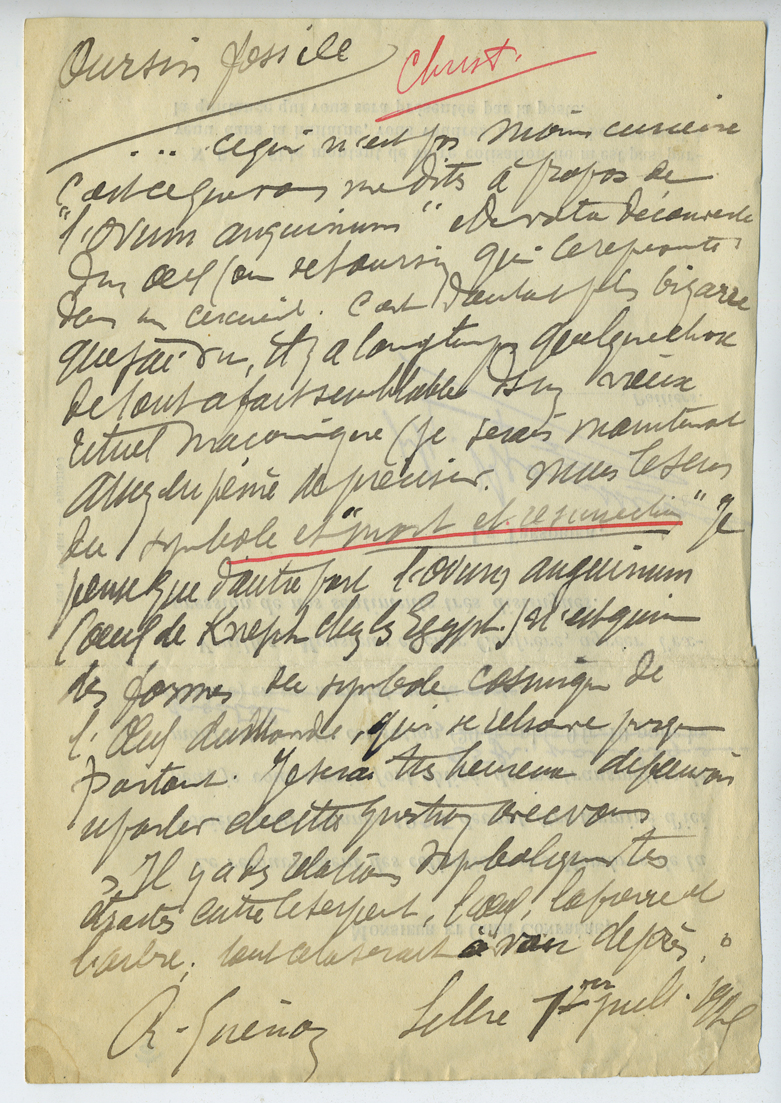 Oursin fossile
Christ.
... ce qui n'est pas moins curieux
c'est ce que vous me dites à propos de
"l'ovum anguinum" et de votre découverte
d'un œuf (ou de l'oursin qui le représente)
dans un cercueil. C'est d'autant plus bizarre
que j'ai vu, il y a longtemps quelque chose
de tout à fait semblable dans un vieux
rituel maçonnique (je serais maintenant
assez en peine de préciser. Mais le sens
du symbole est "mort et résurrection" Je
pense que d'autre part l'ovum anguinum
(œuf de Kneph chez les Egypt.) n'est qu'une
des formes du symbole cosmique de
l'Œuf du Monde, qui se retrouve presque
partout. Je serai très heureux de pouvoir
reparler de cette question avec vous
Il y a des relations symboliques très
étroites entre le serpent, l'œuf, la pierre et
l'arbre; tout cela serait à voir de près."
R. Guénon Lettre 1er juill. 1925